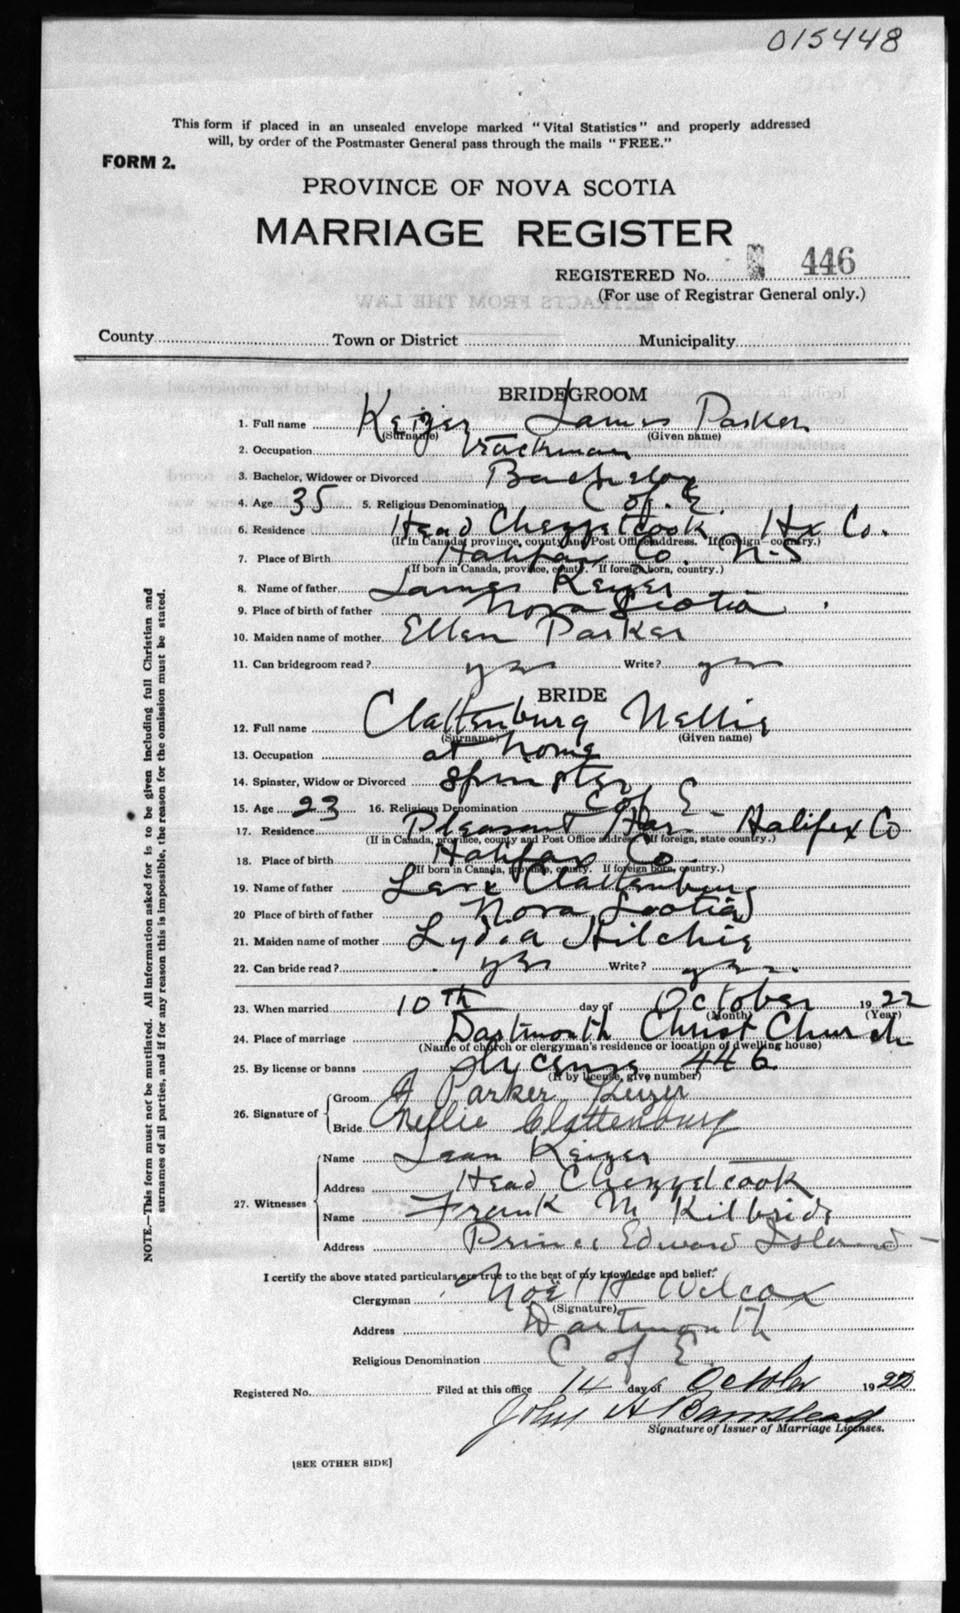 015448
This form if placed in an unsealed envelope marked "Vital Statistics" and properly addressed
will, by order of the Postmaster General pass through the mails "FREE."
FORM 2.
PROVINCE OF NOVA SCOTIA
MARRIAGE REGISTER
REGISTERED No. 446
(For use of Registrar General only.)
County Town or District Municipality
BRIDEGROOM
1. Full name Keizer James Parker
(Surname) (Given name)
2. Occupation trackman
3. Bachelor, Widower or Divorced Bachelor
4. Age 35 5. Religious Denomination C of E.
6. Residence Head Chezzetcook Hx Co.
(If in Canada, province, county and Post Office address. If foreign country.)
7. Place of Birth Halifax Co. N-S
(If born in Canada, province, county. If foreign born, country.)
8. Name of father James Keizer
9. Place of birth of father Nova Scotia
10. Maiden name of mother Ellen Parker
11. Can bridegroom read? yes Write? yes
BRIDE
12. Full name Clattenburg Nellie
(Surname) (Given name)
13. Occupation at home
14. Spinster, Widow or Divorced Spinster
15. Age 23 16. Religious Denomination C of E
17. Residence Pleasant Har. Halifax Co
(If in Canada, province, county and Post Office address. If foreign, state country.)
18. Place of birth Halifax Co.
(If born in Canada, province, county. If foreign born, country.)
19. Name of father Levi Clattenburg
20 Place of birth of father Nova Scotia
21. Maiden name of mother Lydia Hilchie
22. Can bride read? yes Write? yes.
23. When married 10th day of October 1922
(Month) (Year)
24. Place of marriage Dartmouth Christ Church
(Name of church or clergyman's residence or location of dwelling house)
25. By license or banns lycense 446
(If by license, give number)
26. Signature of Groom J Parker Keizer
Bride Nellie Clattenburg
27. Witnesses Name Keizer
Address Head Chezzetcook
Name Frank M Kilbride
Address Prince Edward Island
I certify the above stated particulars are true to the best of my knowledge and belief.
Clergyman Noel H Wilcox
(Signature)
Address Dartmouth
Religious Denomination C of E.
Registered No. Filed at this office 14 day of October 1922
John A
Signature of Issuer of Marriage Licenses.
[SEE OTHER SIDE]
NOTE.—This form must not be mutilated. All information asked for is to be given including full Christian and
surnames of all parties, and if for any reason this is impossible, the reason for the omission must be stated.